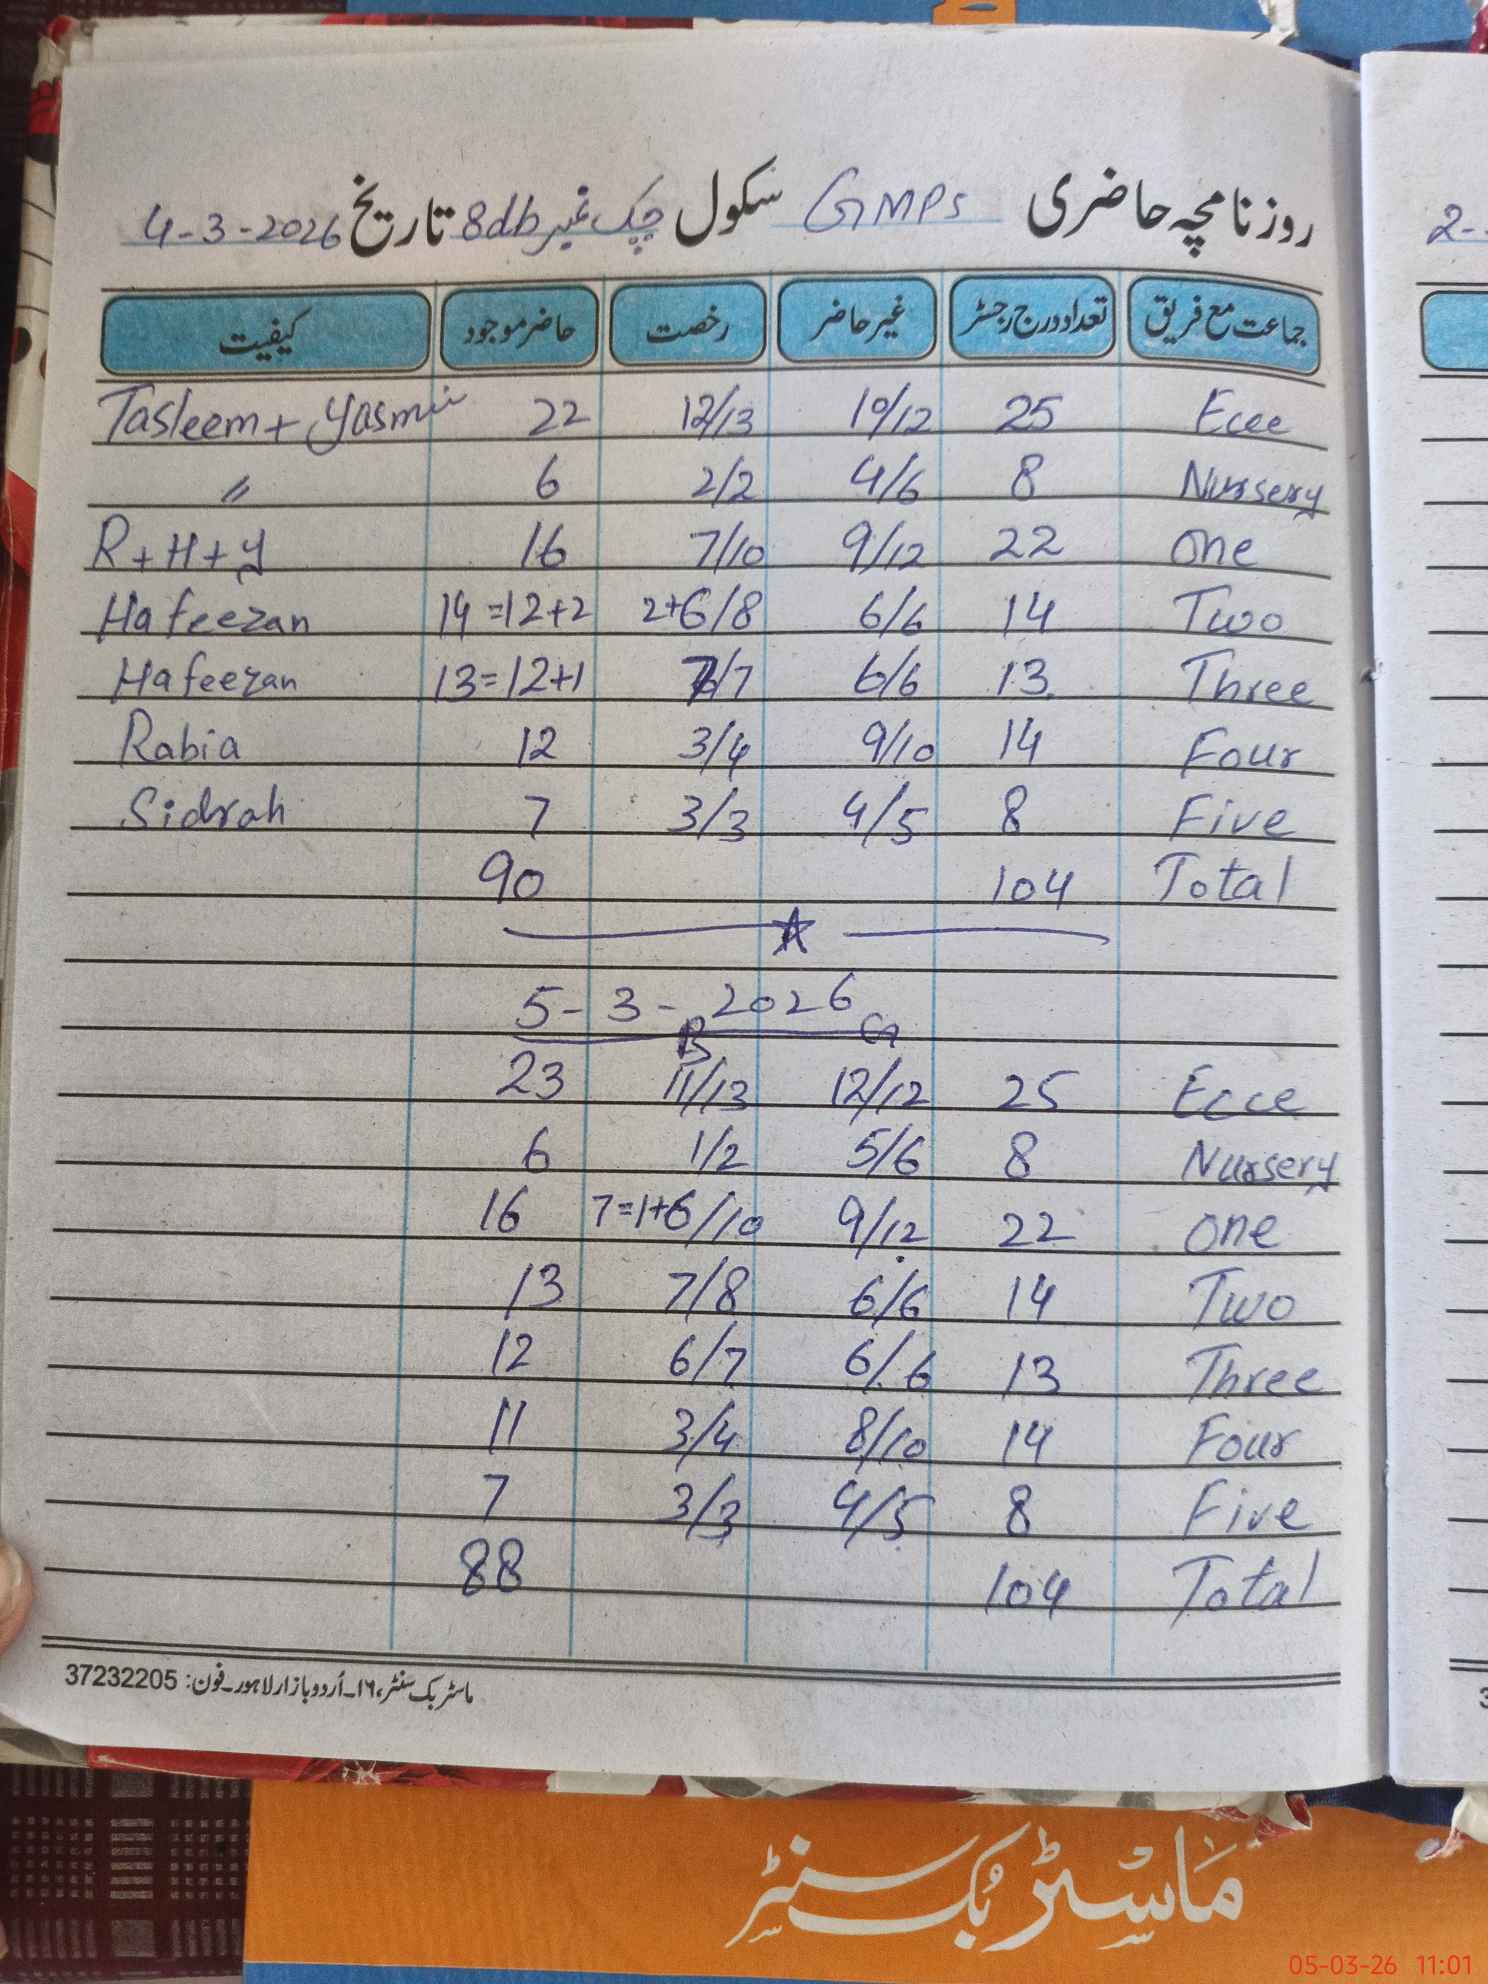 روزنامچہ حاضری GMPS سکول چک نمبر 8db تاریخ 4-3-2026
جماعت مع فریق تعداد درج رجسٹر غیر حاضر رخصت حاضر موجود کیفیت
Ecee 25 10/12 12/13 22 Tasleem + Yasmin
Nursery 8 4/6 2/2 6 〃
One 22 9/12 7/10 16 R+H+Y
Two 14 6/6 2+6/8 14=12+2 Hafeezan
Three 13 6/6 7/7 13=12+1 Hafeezan
Four 14 9/10 3/4 12 Rabia
Five 8 4/5 3/3 7 Sidrah
Total 104 90
5-3-2026
G B
Ecce 25 12/12 11/13 23
Nursery 8 5/6 1/2 6
One 22 9/12 7=1+6/10 16
Two 14 6/6 7/8 13
Three 13 6/6 6/7 12
Four 14 8/10 3/4 11
Five 8 4/5 3/3 7
Total 104 88
ماسٹر بک سنٹر، ۱۶۔اُردو بازار لاہور۔ فون: 37232205
2-
ماسٹر بک سنٹر
05-03-26 11:01